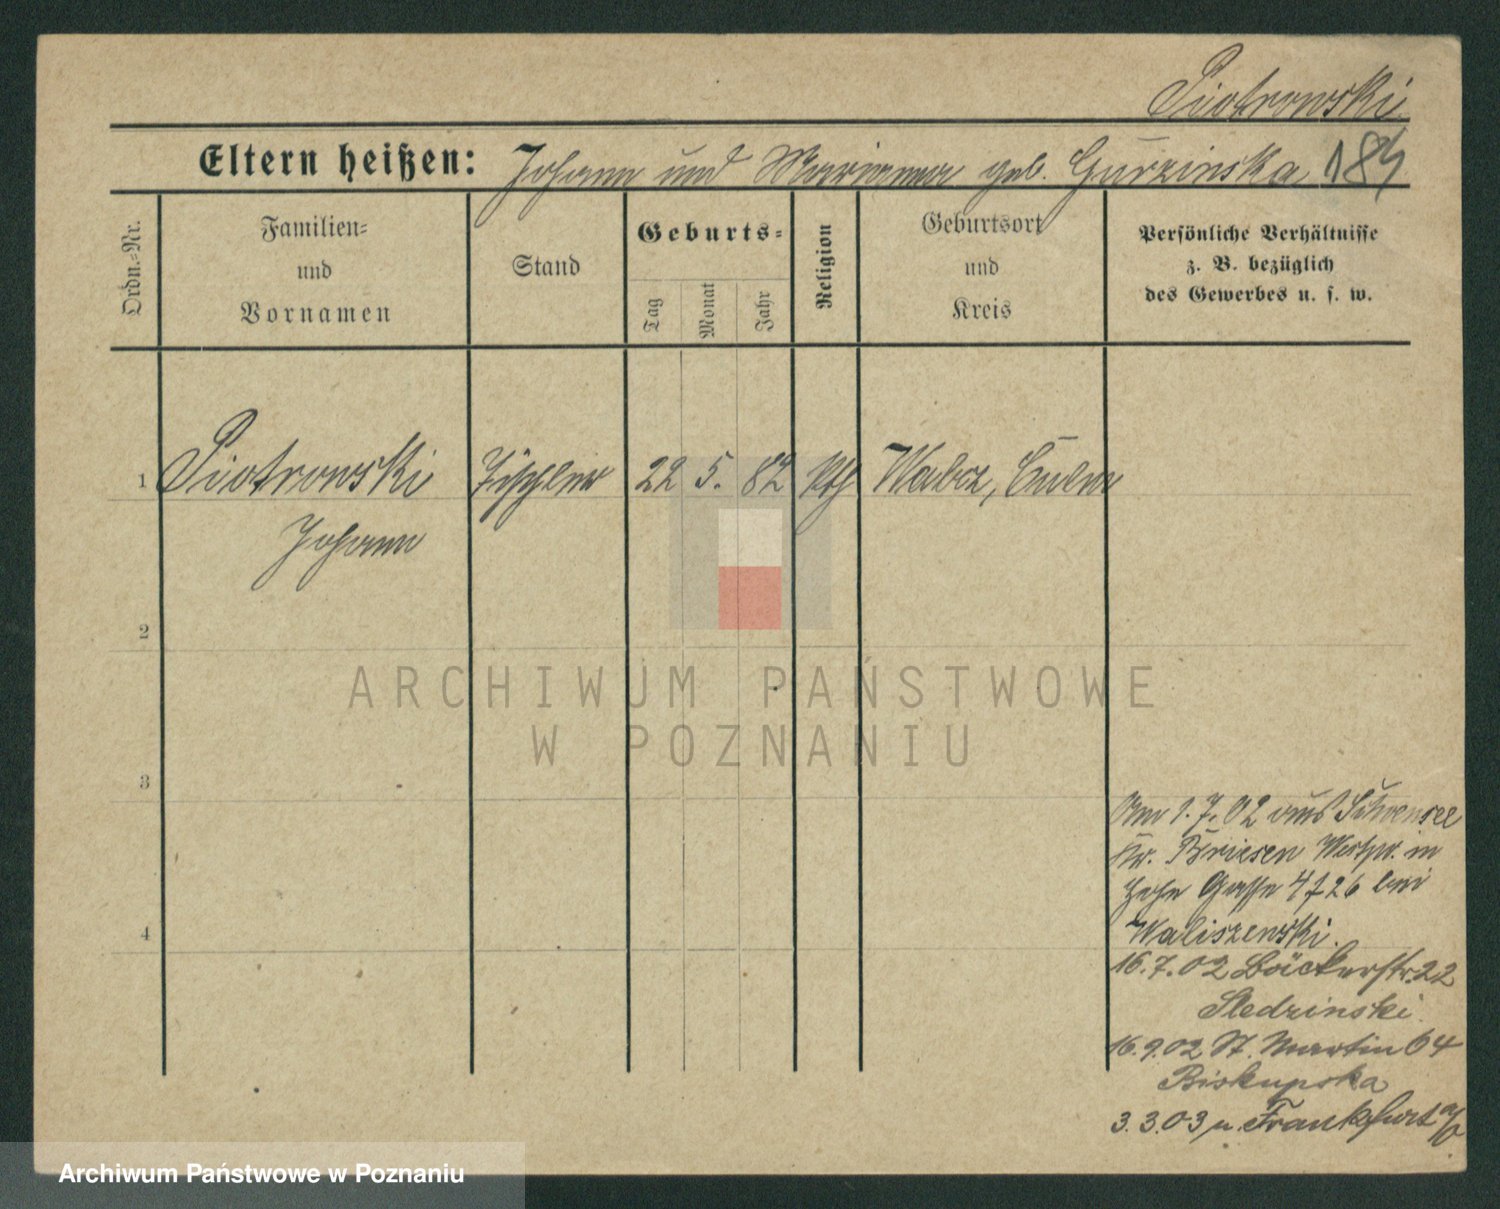 Piotrowski
Eltern heißen: Johann und Marianna geb. Gurzinska 184
Ordn.-Nr.
Familien-
und
Vornamen
Stand
Geburts-
Tag
Monat
Jahr
Religion
Geburtsort
und
Kreis
Persönliche Verhältnisse
z. B. bezüglich
des Gewerbes u. s. w.
1 Piotrowski Tischler 22 5. 82 kth Wabcz, Culm
Johann
2
3
4
Am 1.7.02 aus Schoensee
Kr. Briesen Westpr. in
Hohe Gasse 4 26 bei
Waliszewski.
16.7.02 Bäckerstr. 22
Sledzinski.
16.9.02 St. Martin 64
Biskupska
3.3.03 n. Frankfurt a/O
ARCHIWUM PAŃSTWOWE
W POZNANIU
Archiwum Państwowe w Poznaniu